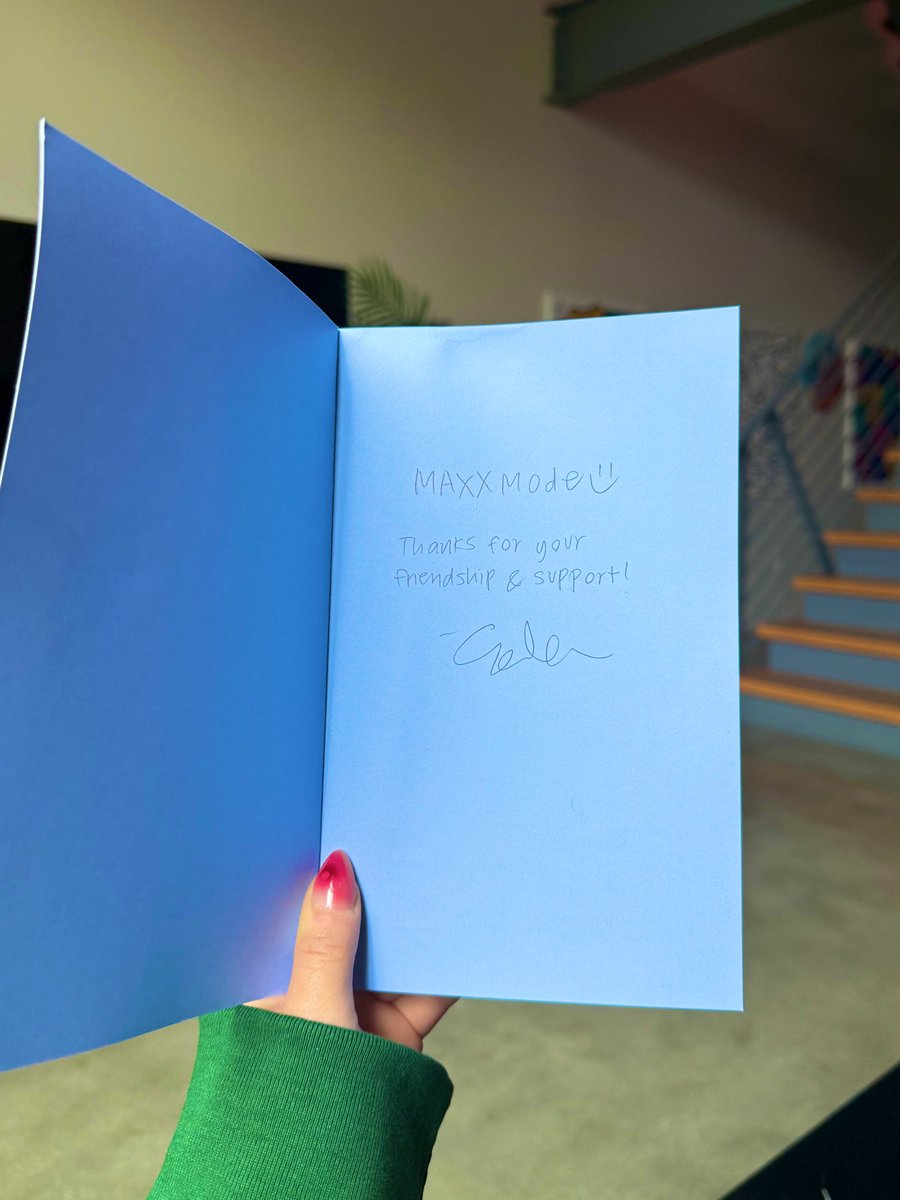 MAXXMODE :)
Thanks for your
friendship & support!